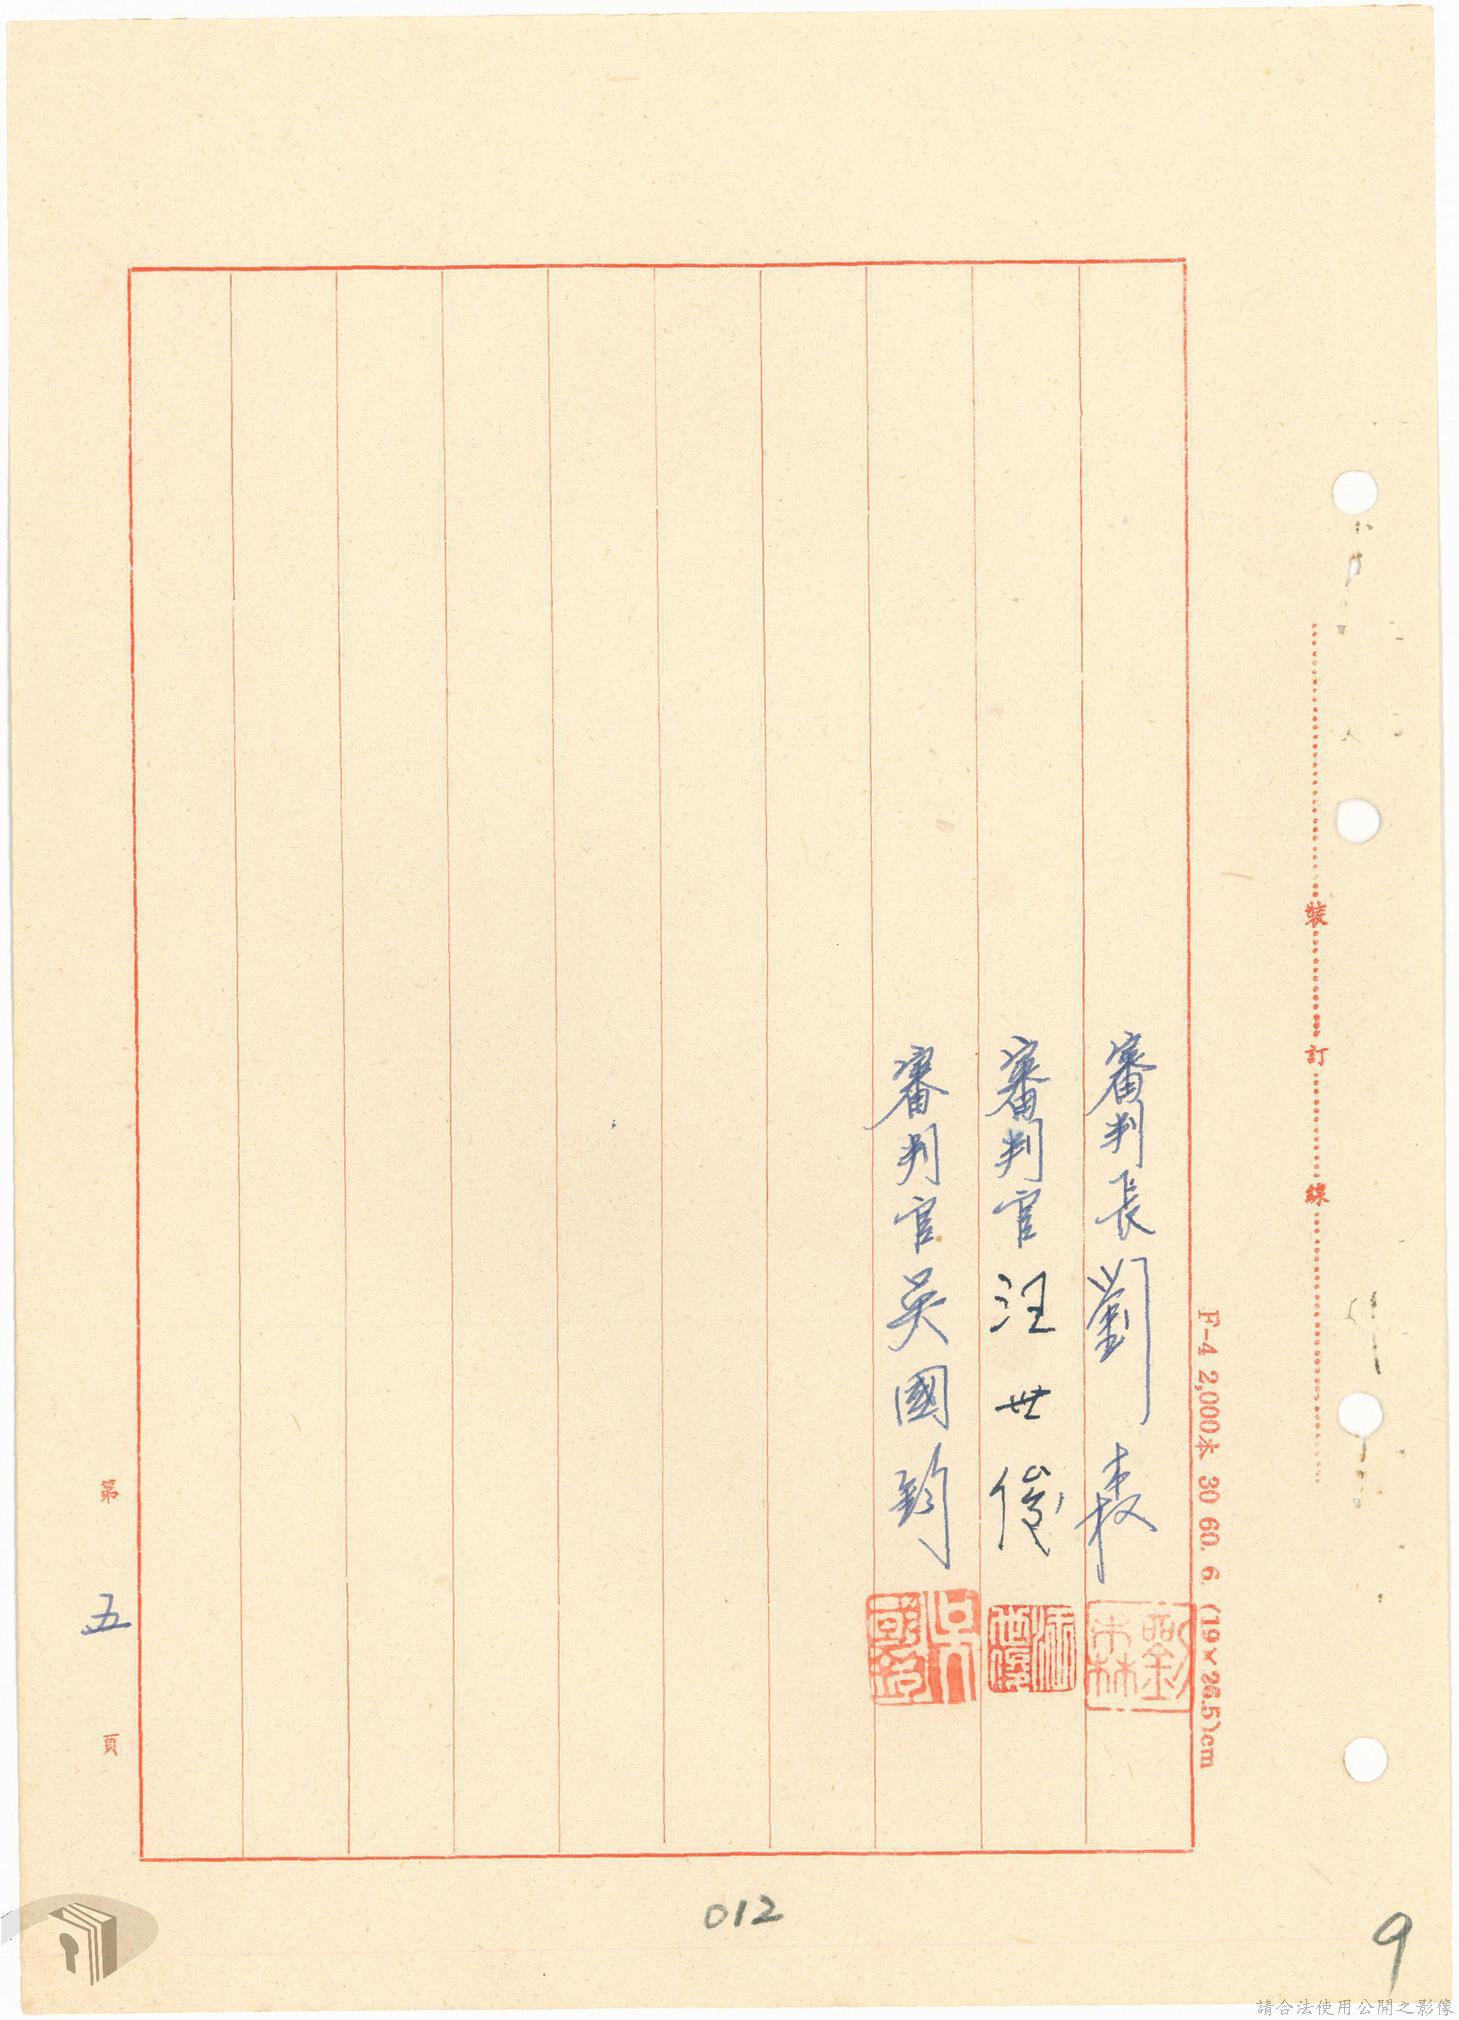 裝訂線
F-4 2,000本 30 60. 6. (19×26.5)cm
審判長劉森
劉森
審判官汪世俊
汪世俊
審判官吳國鈞
吳國鈞
第五頁
012
9
請合法使用公開之影像